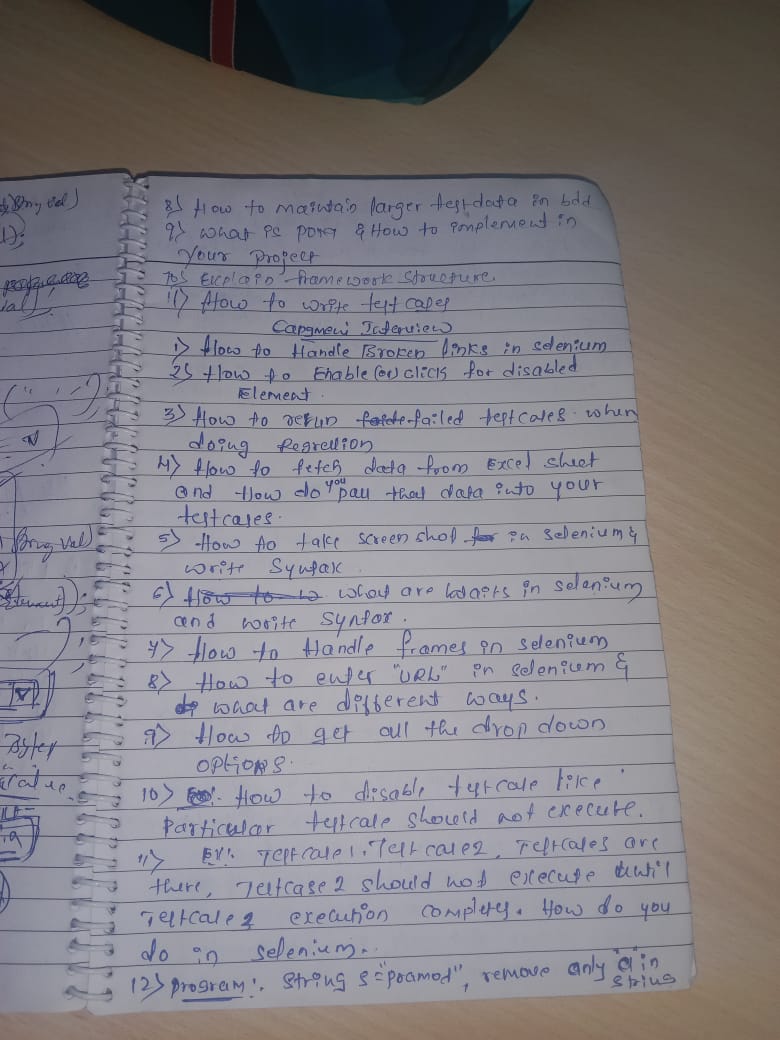 8) How to maintain larger testdata in bdd
9) what is pom & How to implement in
your project
10) Explain framework structure
11) How to write test cases
Capgmeni Interview
1) How to Handle Broken links in selenium
2) How to Enable (or) click for disabled
Element.
3) How to rerun failed testcases when
doing Regression
4) How to fetch data from Excel sheet
and How do you pass that data into your
testcases.
5) How to take screen shot in selenium &
write Syntax
6) what are waits in selenium
and write syntax.
7) How to Handle frames in selenium
8) How to enter "URL" in selenium &
what are different ways.
9) How to get all the drop down
options.
10) How to disable testcase like
particular testcase should not execute.
11) EX: Testcase1, Testcase2, Testcases are
there, Testcase 2 should not execute until
Testcase execution completes. How do you
do in selenium.
12) program: String s="pramod", remove only 'a' in
string